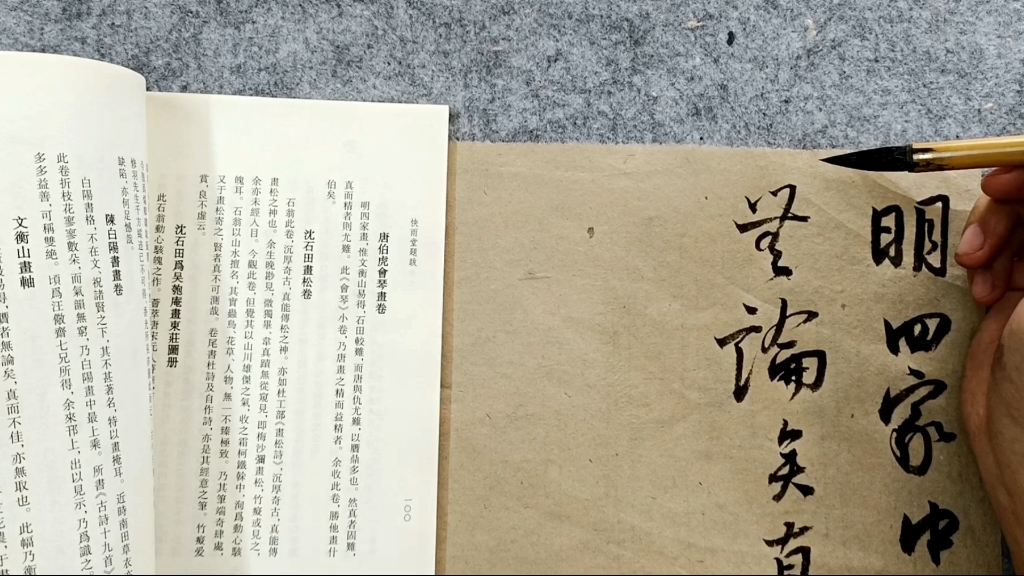 明四家中
無論矣
快雨堂題跋
一〇〇
唐伯虎會琴畫卷
明四家畫，惟文衡山易得，石田較難，而唐與仇尤難，以贋鼎多也。然真者固難，
真而精者則尤難。此《會琴》小卷，乃唐畫之精而益精者。余收此卷，勝他畫什
伯矣。
沈石田畫松卷
石翁此卷，沉厚奇古，真能傳松之神。亦如杜工部《畫松詩》，沉厚奇古，真能傳
畫松之神也。余生晚尠見，徵獨畢、韋真蹟無從窺見，即梅沙彌畫松、竹癡或見之，
余亦未經人目。今觀此卷，但覺其以山川雄傑之氣，收之霜柯鐵榦中，洵爲動心駭
魄耳。石翁以山水擅名，其實蟲鳥、花草、人物，無一不臻極致。乃其筆端奇肆處，
又于畫松寄之，賢者真不可測哉。卷尾書杜詩及自作詩，亦是其經意之筆，竹癡愛
賞，良不虛云。
沈石田爲吴匏庵畫東莊圖册
此石翁動心駭魄之作。
缺陷，亦何足憾哉。
陳白陽書畫卷
白陽書格，不在文、祝諸賢之下，其不甚著名，特以畫掩耳。近時南田草衣
此卷折枝花寥寥數朵，而氣韻無窮，乃白陽畫中最上乘。所書《古詩十九首》
多多益善，可稱雙絶。頃爲汪儆齋七兄所得，余來邗上，出以見示，乃爲識之。
文衡山畫軸
者無論矣，真而不佳，亦無取也。此幅乃衡